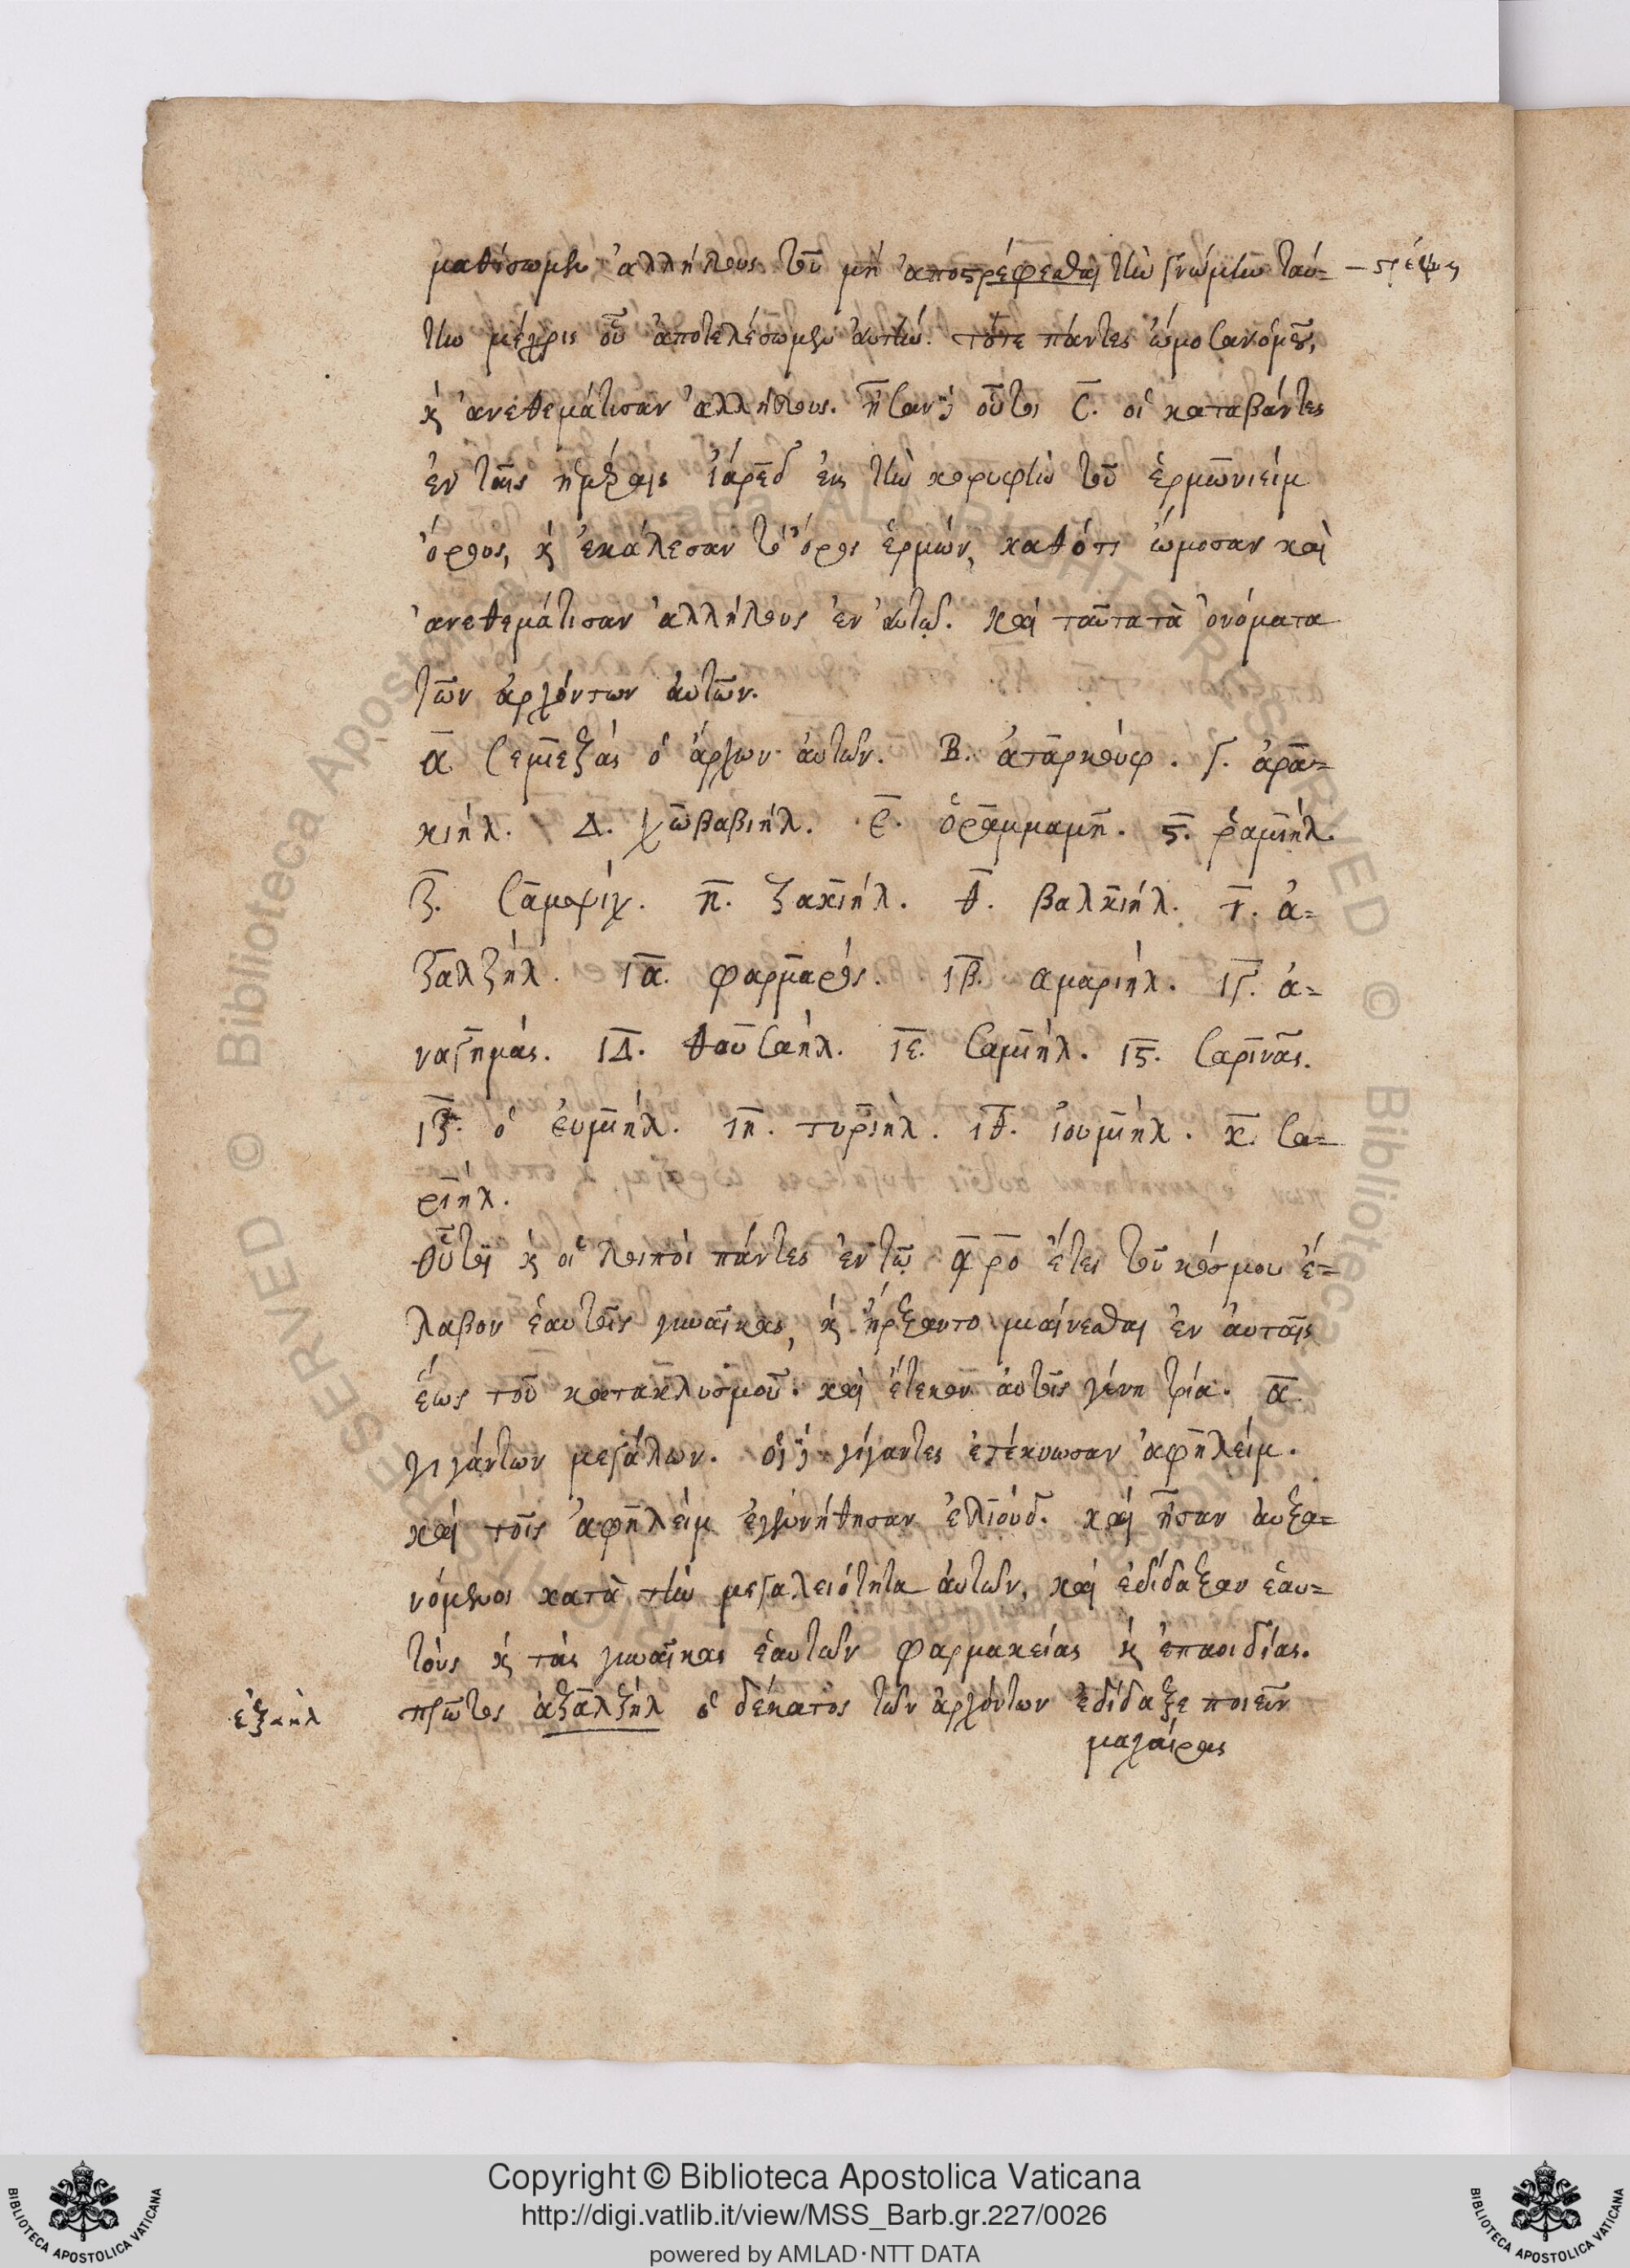 ματίσωμεν ἀλλήλους τοῦ μὴ ἀποστρέφεσθαι τὴν γνώμην ταύ=
— στρέψαι
την μέχρις οὗ ἀποτελέσωμεν αὐτήν. τότε πάντες ὤμοσαν ὁμοῦ,
κ̀ ἀνεθεμάτισαν ἀλλήλους. ἦσαν δὲ οὗτοι σ̅. οἱ καταβάντες
ἐν ταῖς ἡμέραις ἰάρεδ εἰς τὴν κορυφὴν τοῦ ἑρμωνιεὶμ
ὄρους, κ̀ ἐκάλεσαν τὸ ὄρος ἑρμών, καθότι ὤμοσαν καὶ
ἀνεθεμάτισαν ἀλλήλους ἐν αὐτῷ. καὶ ταῦτα τὰ ὀνόματα
τῶν ἀρχόντων αὐτῶν.
α̅ σεμιεξᾶς ὁ ἄρχων αὐτῶν. Β. ἀταρκούφ. γ. ἀρα=
κιήλ. Δ. χωβαβιήλ. ε̅. ὁραμμαμή. ϛ̅. ῥαμιήλ.
ζ̅. σαμψίχ. η̅. ζακιήλ. θ̅. βαλκιήλ. ι̅. ἀ=
ζαλζήλ. ια̅. φαρμαρός. ιβ̅. αμαριήλ. ιγ̅. ἀ=
ναγημάς. ιδ̅. θαυσαήλ. ιε̅. σαμιήλ. ιϛ̅. σαρινᾶς.
ιζ̅. ὁ εὐμιήλ. ιη̅. τυριήλ. ιθ̅. ἰουμιήλ. κ̅. σα=
ριήλ.
οὗτοι κ̀ οἱ λοιποὶ πάντες ἐν τῷ α̅ρ̅ο̅ ἔτει τοῦ κόσμου ἔ=
λαβον ἑαυτοῖς γυναῖκας, κ̀ ἤρξαντο μιαίνεσθαι ἐν αὐταῖς
ἕως τοῦ κατακλυσμοῦ. καὶ ἔτεκον αὐτοῖς γένη τρία. α̅.
γιγάντων μεγάλων. οἱ δὲ γίγαντες ἐτέκνωσαν ἀφηλείμ.
καὶ τοῖς ἀφηλεὶμ ἐγεννήθησαν ἐλιούδ. καὶ ἦσαν αὐξα=
νόμενοι κατὰ τὴν μεγαλειότητα αὐτῶν, καὶ ἐδίδαξαν ἑαυ=
τοὺς κ̀ τὰς γυναῖκας ἑαυτῶν φαρμακείας κ̀ ἐπαοιδίας.
ἐξαὴλ
πρῶτος ἀζαλζὴλ ὁ δέκατος τῶν ἀρχόντων ἐδίδαξε ποιεῖν
μαχαίρας
Copyright © Biblioteca Apostolica Vaticana
http://digi.vatlib.it/view/MSS_Barb.gr.227/0026
powered by AMLAD·NTT DATA